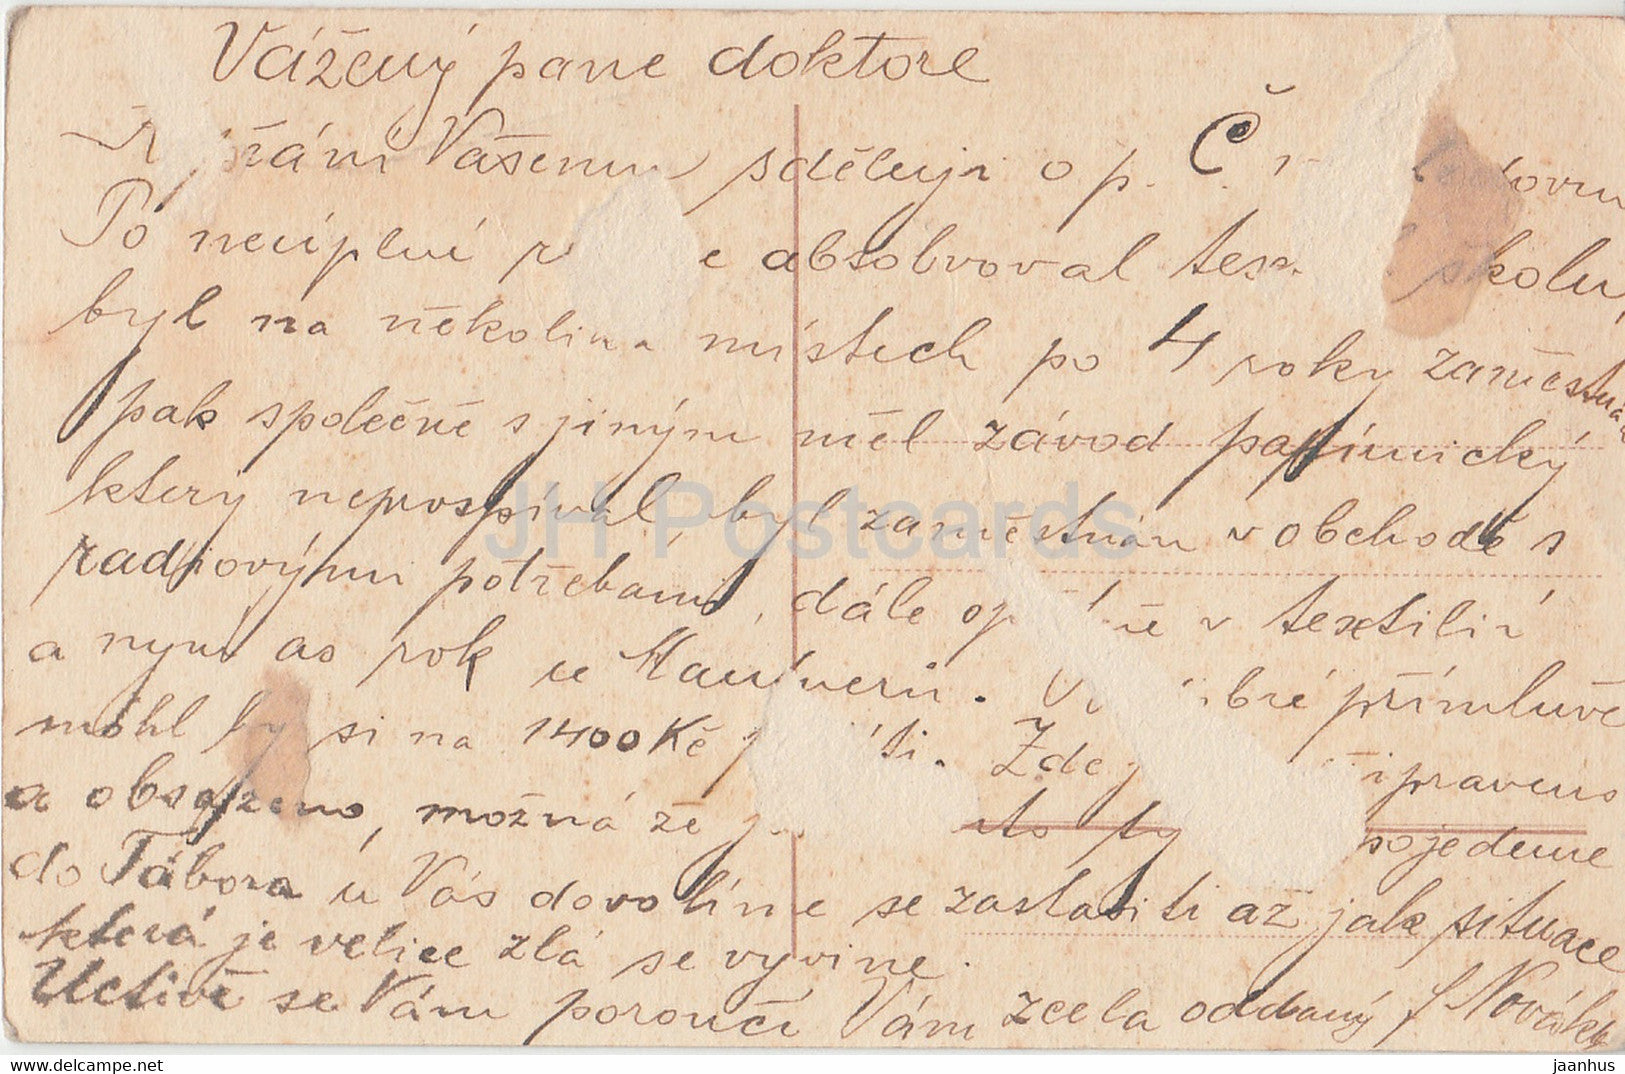 Vážený pane doktore
přání Vašemu sděluji o p. Č.
Po neúplné absolvoval školu,
byl na několika místech po 4 roky zaměstnán
pak společně s jiným měl závod papírnický
který neprospíval, byl zaměstnán v obchodě s
radiovými potřebami, dále opětně v textilii
a nyní as rok u. přímluvě
mohl by si na 1400 Kč. Zde připraveno
a obsazeno, možná že pojedeme
do Tábora u Vás dovolíme se zastaviti až jak situace
která je velice zlá se vyvine.
Uctivě se Vám poroučí Vám zcela oddaný J Novák
JH Postcards
delcampe.net
jaanhus